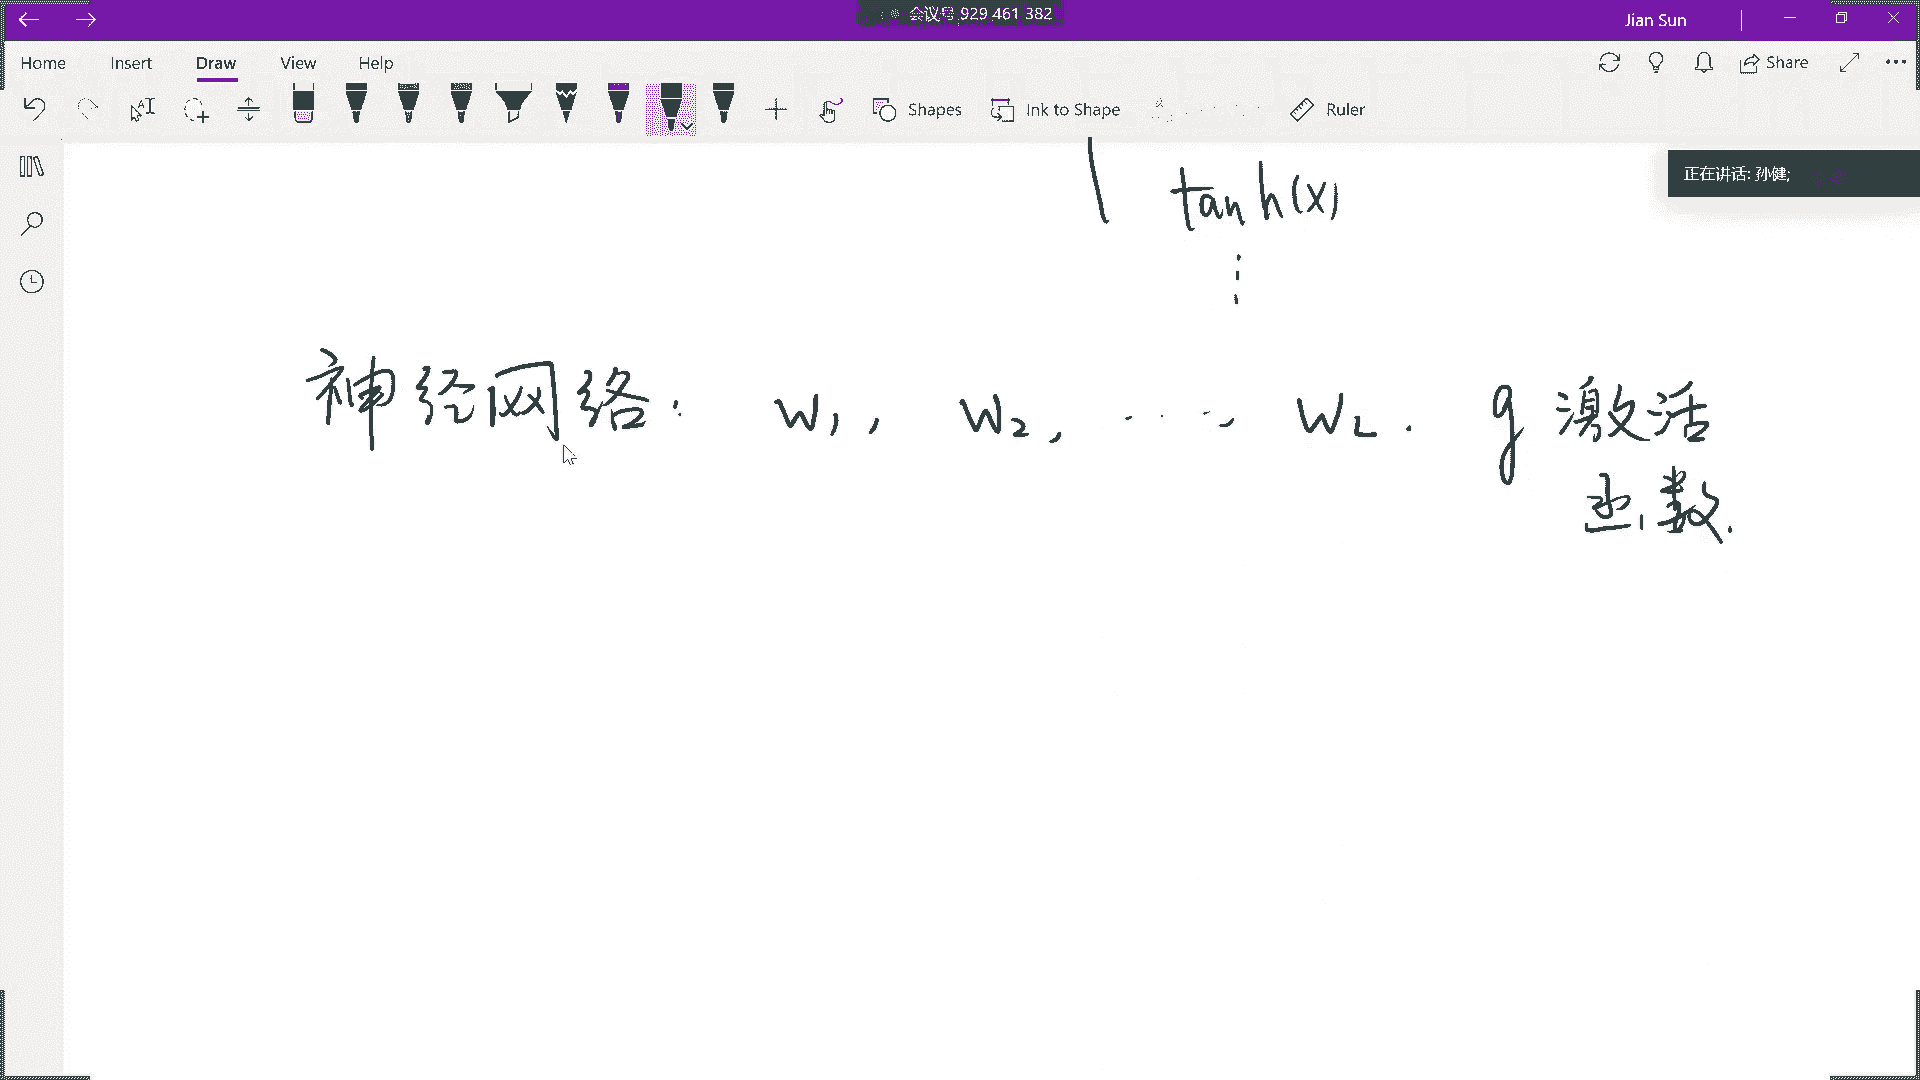 会议号 929 461 382
Jian Sun
Home Insert Draw View Help
Share
Shapes Ink to Shape Ruler
正在讲话: 孙健;
tanh(x)
⋮
神经网络: w₁, w₂, ……, w_L. g 激活
函数.